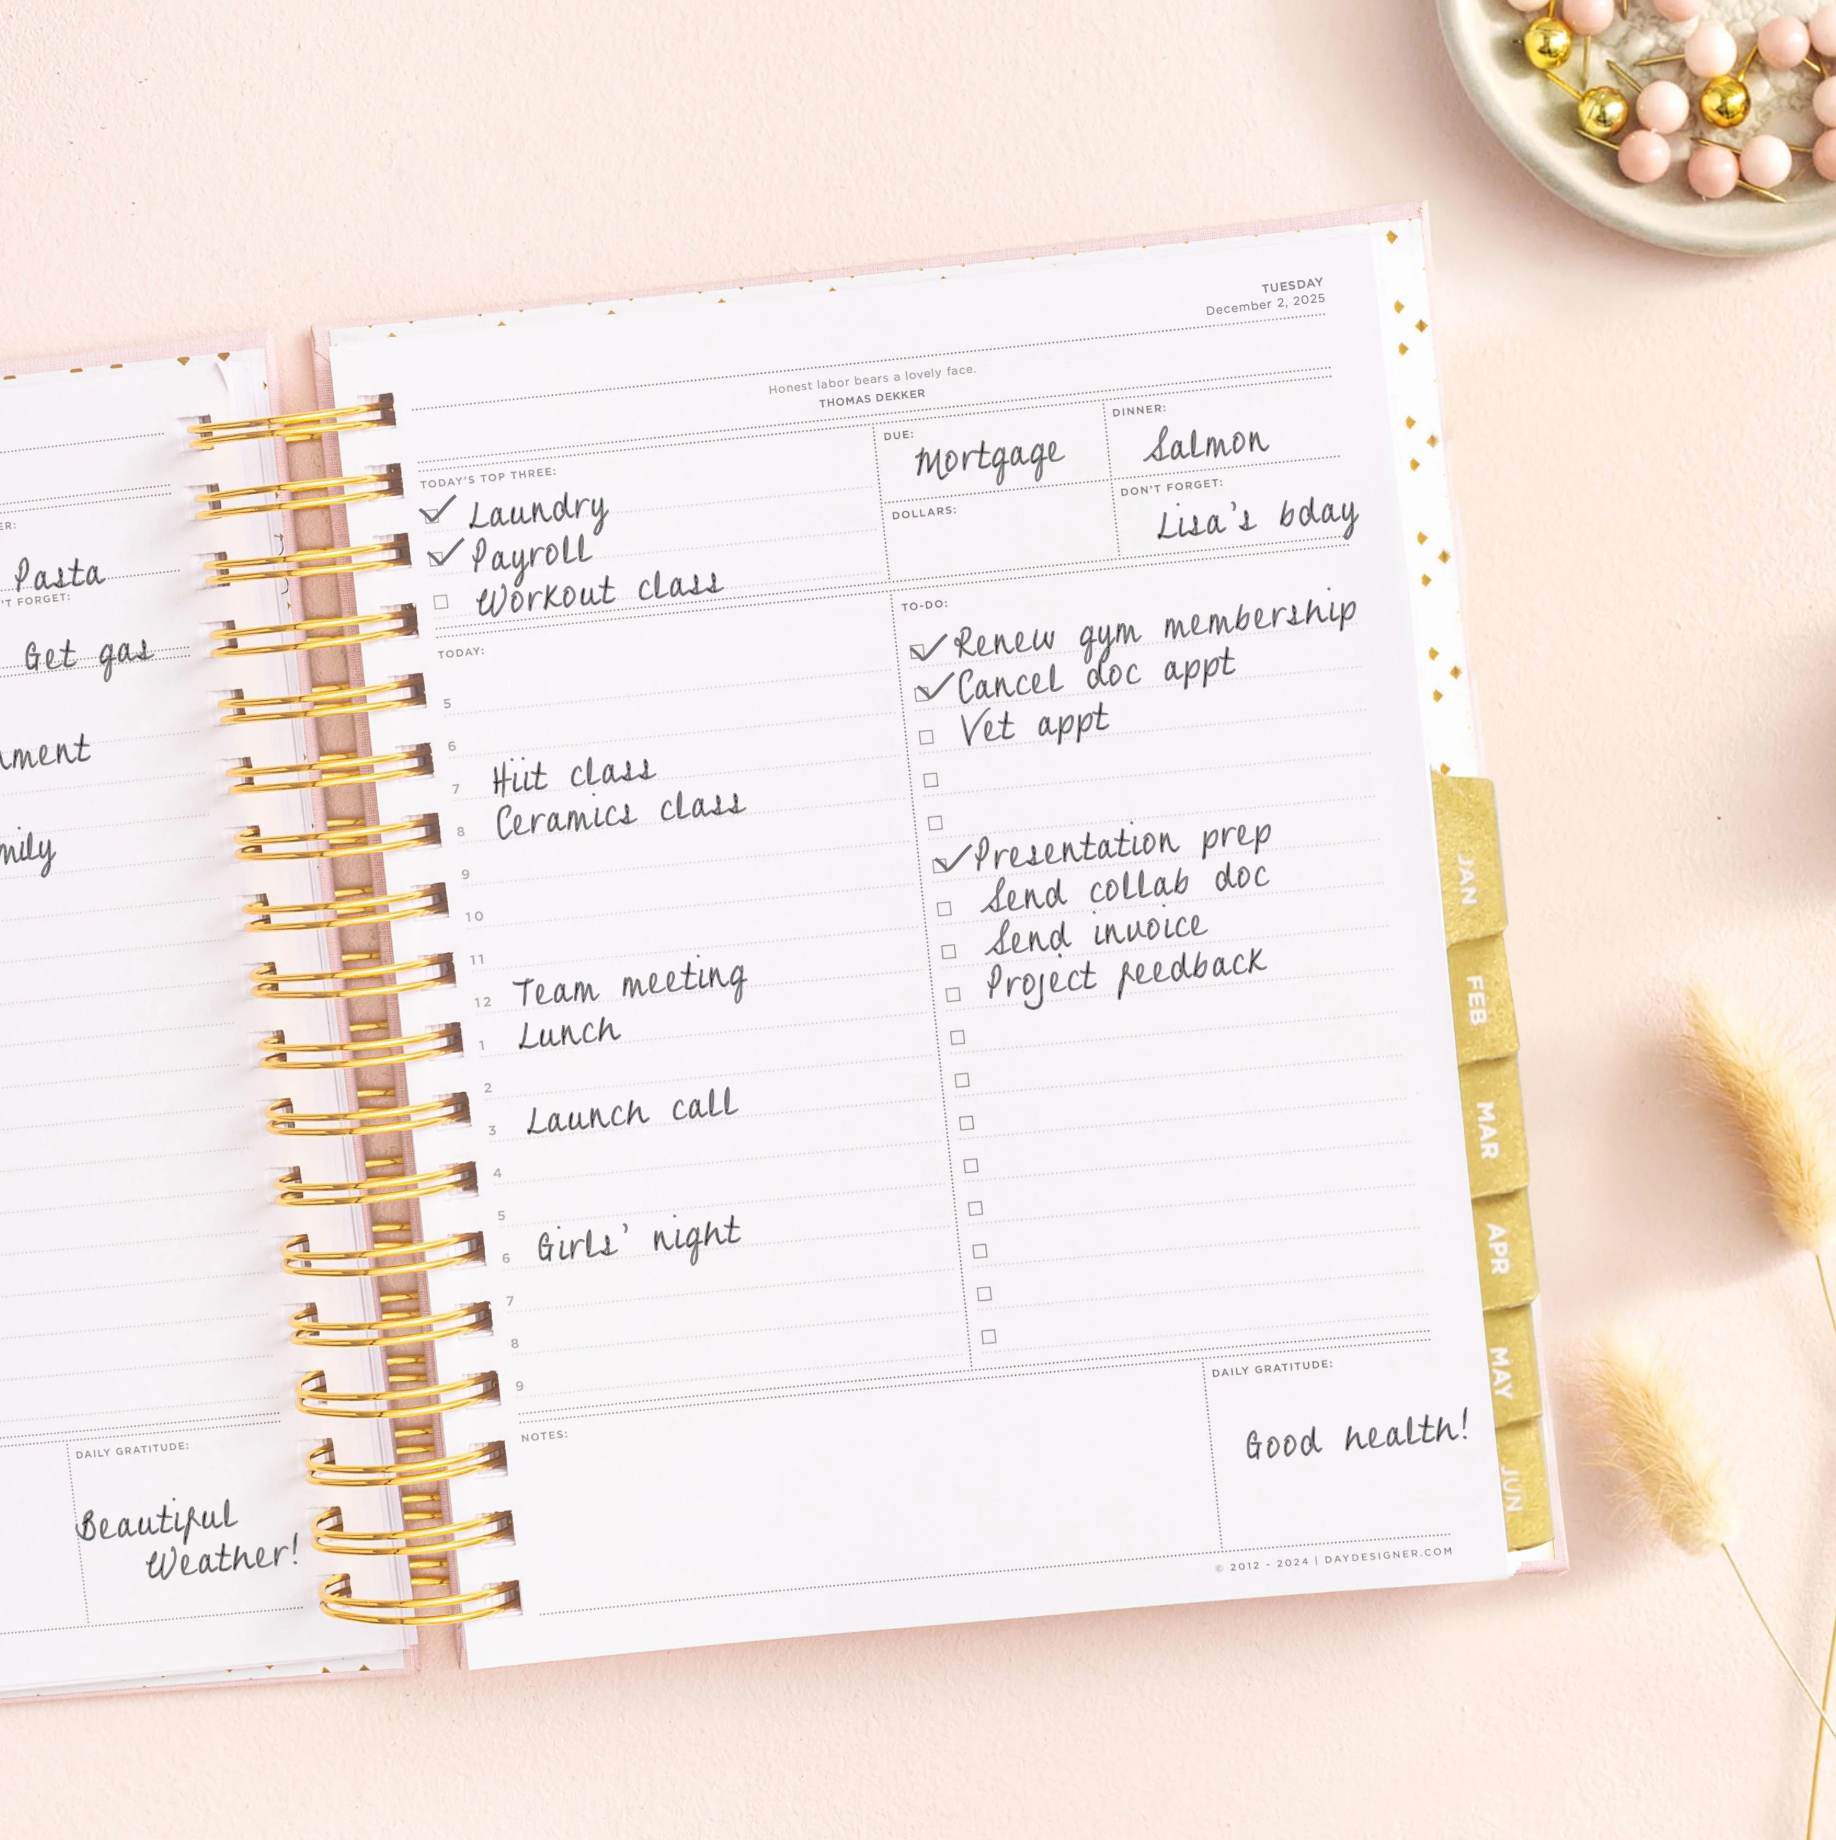 ER:
Pasta
'T FORGET:
Get gas
ment
mily
DAILY GRATITUDE:
Beautiful
Weather!
TUESDAY
December 2, 2025
Honest labor bears a lovely face.
THOMAS DEKKER
TODAY'S TOP THREE:
Laundry
Payroll
Workout class
DUE:
Mortgage
DINNER:
Salmon
DOLLARS:
DON'T FORGET:
Lisa's bday
TODAY:
5
6
7 Hiit class
8 Ceramics class
9
10
11
12 Team meeting
1 Lunch
2
3 Launch call
4
5
6 Girls' night
7
8
9
TO-DO:
Renew gym membership
Cancel doc appt
Vet appt
Presentation prep
Send collab doc
Send invoice
Project feedback
NOTES:
DAILY GRATITUDE:
Good health!
© 2012 - 2024 | DAYDESIGNER.COM
JAN
FEB
MAR
APR
MAY
JUN